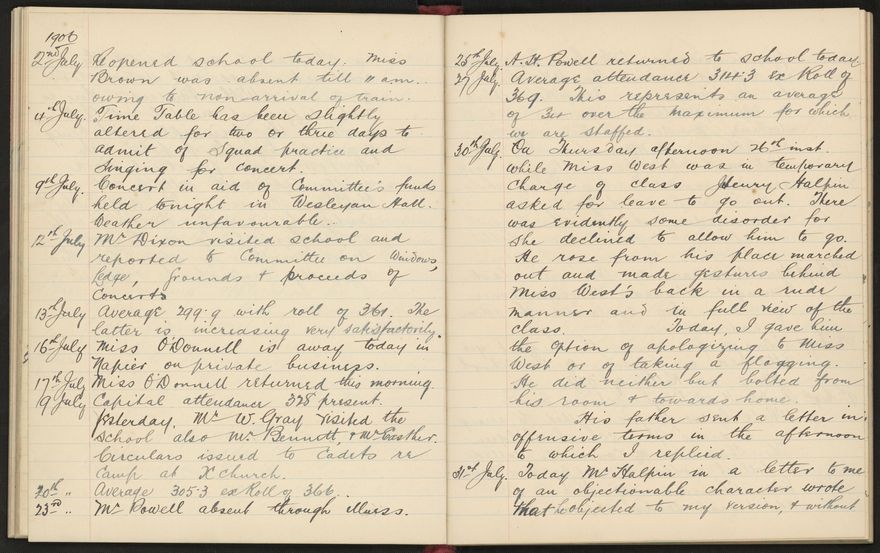 1906
2nd July Reopened school today. Miss
Brown was absent till 11 am.
owing to non-arrival of train.
4th July. Time Table has been slightly
altered for two or three days to
admit of Squad practice and
Singing for concert.
9th July. Concert in aid of Committee's funds
held tonight in Wesleyan Hall.
Weather unfavourable.
12th July Mr Dixon visited school and
reported to Committee on Windows,
Ledge, Grounds & proceeds of
Concerts
13th July Average 299.9 with roll of 361. The
latter is increasing very satisfactorily.
16th July Miss O'Donnell is away today in
Napier on private business.
17th July Miss O'Donnell returned this morning
19 July Capital attendance 328 present.
Yesterday, Mr W. Gray visited the
school also Mr Bennett, & Mr Easther.
Circulars issued to Cadets re
Camp at XChurch.
20th " Average 305.3 ex Roll of 366.
23rd " Mr Powell absent through illness.
25th July A. H. Powell returned to school today
27 July. Average attendance 314.3 ex Roll of
369. This represents an average
of 34 over the maximum for which
we are staffed.
30th July. On Thursday afternoon 26th inst.
while Miss West was in temporary
charge of class Henry Halpin
asked for leave to go out. There
was evidently some disorder for
she declined to allow him to go.
He rose from his place marched
out and made gestures behind
Miss West's back in a rude
manner and in full view of the
class. Today, I gave him
the option of apologizing to Miss
West or of taking a flogging.
He did neither but bolted from
his room & towards home.
His father sent a letter in
offensive terms in the afternoon
to which I replied.
31st July. Today Mr Halpin in a letter to me
of an objectionable character wrote
that he objected to my version, & without